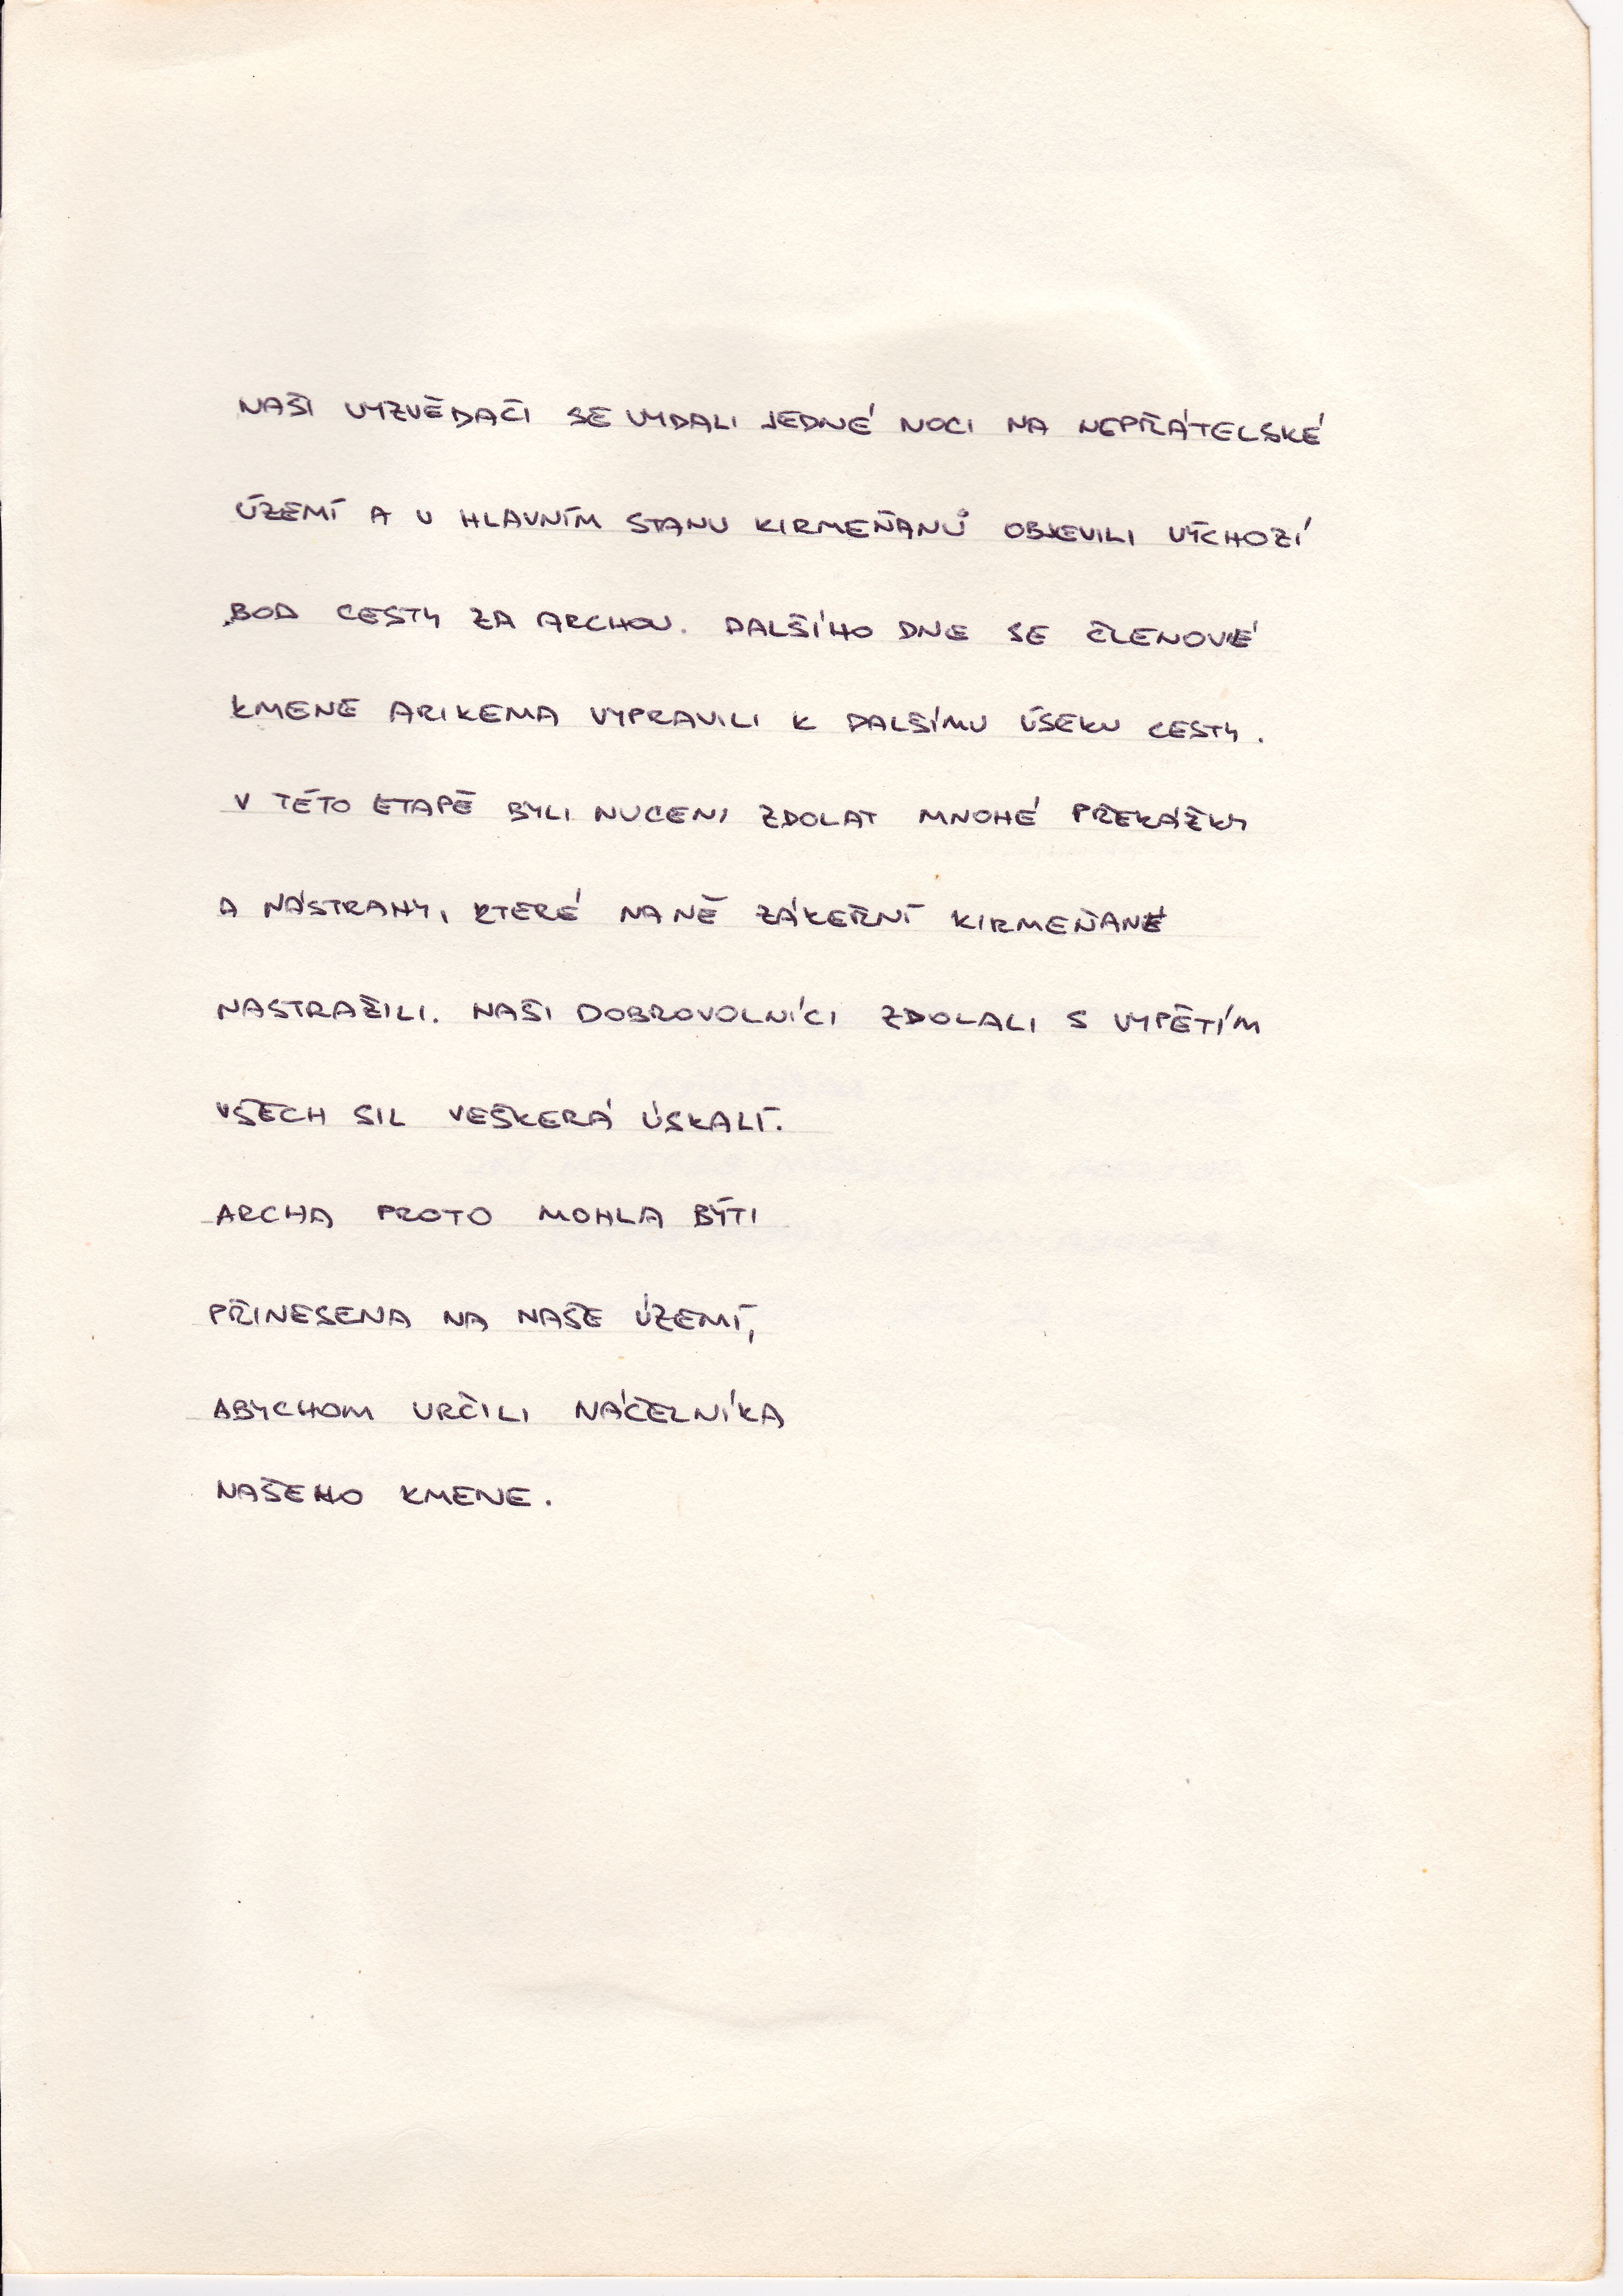 NAŠI VYZVĚDAČI SE VYDALI JEDNÉ NOCI NA NEPŘÁTELSKÉ
ÚZEMÍ A V HLAVNÍM STANU KIRMEŇANŮ OBJEVILI VÝCHOZÍ
BOD CESTY ZA ARCHOU. DALŠÍHO DNE SE ČLENOVÉ
KMENE ARIKEMA VYPRAVILI K DALŠÍMU ÚSEKU CESTY.
V TÉTO ETAPĚ BYLI NUCENI ZDOLAT MNOHÉ PŘEKÁŽKY
A NÁSTRAHY, KTERÉ NA NĚ ZÁKEŘNÍ KIRMEŇANÉ
NASTRAŽILI. NAŠI DOBROVOLNÍCI ZDOLALI S VYPĚTÍM
VŠECH SIL VEŠKERÁ ÚSKALÍ.
ARCHA PROTO MOHLA BÝTI
PŘINESENA NA NAŠE ÚZEMÍ,
ABYCHOM URČILI NÁČELNÍKA
NAŠEHO KMENE.